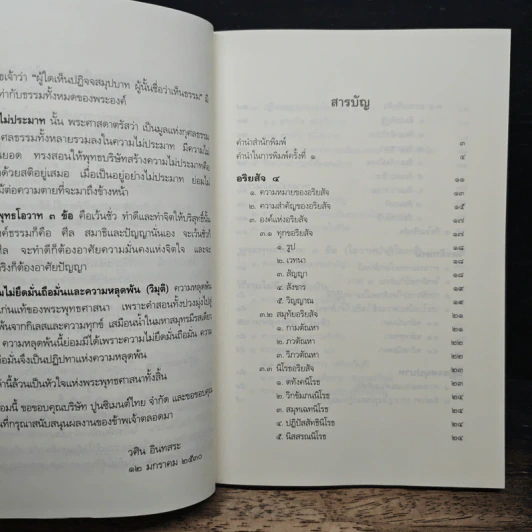 ธเจ้าว่า "ผู้ใดเห็นปฏิจจสมุปบาท ผู้นั้นชื่อว่าเห็นธรรม" มี
ท่ากับธรรมทั้งหมดของพระองค์
ไม่ประมาท นั้น พระศาสดาตรัสว่า เป็นมูลแห่งกุศลธรรม
กุศลธรรมทั้งหลายรวมลงในความไม่ประมาท มีความไม่
ยอด ทรงสอนให้พุทธบริษัทสร้างความไม่ประมาทคือ
ด้วยสติอยู่เสมอ เมื่อเป็นอยู่อย่างไม่ประมาท ย่อมไม่
มต่อความตายที่จะมาถึงข้างหน้า
พุทธโอวาท ๓ ข้อ คือเว้นชั่ว ทำดีและทำจิตให้บริสุทธิ์นั้น
งค์ธรรมก็คือ ศีล สมาธิและปัญญานั่นเอง จะเว้นชั่วก็
ศีล จะทำดีก็ต้องอาศัยความมั่นคงแห่งจิตใจ และจะ
ริงก็ต้องอาศัยปัญญา
มไม่ยึดมั่นถือมั่นและความหลุดพ้น (วิมุติ) ความหลุดพ้น
แก่นแท้ของพระพุทธศาสนา เพราะคำสอนทั้งปวงมุ่งไปสู่
พ้นจากกิเลสและความทุกข์ เสมือนน้ำในมหาสมุทรมีรสเดียว
ความหลุดพ้นนี้ย่อมมีได้เพราะความไม่ยึดมั่นถือมั่น ความ
อมั่นจึงเป็นปฏิปทาแห่งความหลุดพ้น
ล่านี้ล้วนเป็นหัวใจแห่งพระพุทธศาสนาทั้งสิ้น
อมนี้ ขอขอบคุณบริษัท ปูนซิเมนต์ไทย จำกัด และขอขอบคุณ
นที่กรุณาสนับสนุนผลงานของข้าพเจ้าตลอดมา
วศิน อินทสระ
๑๒ มกราคม ๒๕๓๐
สารบัญ
คำนำสำนักพิมพ์ ๓
คำนำในการพิมพ์ครั้งที่ ๑ ๔
อริยสัจ ๔ ๑๑
๑. ความหมายของอริยสัจ ๑๓
๒. ความสำคัญของอริยสัจ ๑๕
๓. องค์แห่งอริยสัจ ๑๗
๓.๑ ทุกขอริยสัจ ๑๗
๑. รูป ๑๘
๒. เวทนา ๑๘
๓. สัญญา ๑๘
๔. สังขาร ๑๘
๕. วิญญาณ ๑๘
๓.๒ สมุทัยอริยสัจ ๒๑
๑. กามตัณหา ๒๑
๒. ภวตัณหา ๒๑
๓. วิภวตัณหา ๒๑
๓.๓ นิโรธอริยสัจ ๒๓
๑. ตทังคนิโรธ ๒๓
๒. วิกขัมภนนิโรธ ๒๔
๓. สมุทเฉทนิโรธ ๒๔
๔. ปฏิปัสสัทธินิโรธ ๒๔
๕. นิสสรณนิโรธ ๒๔